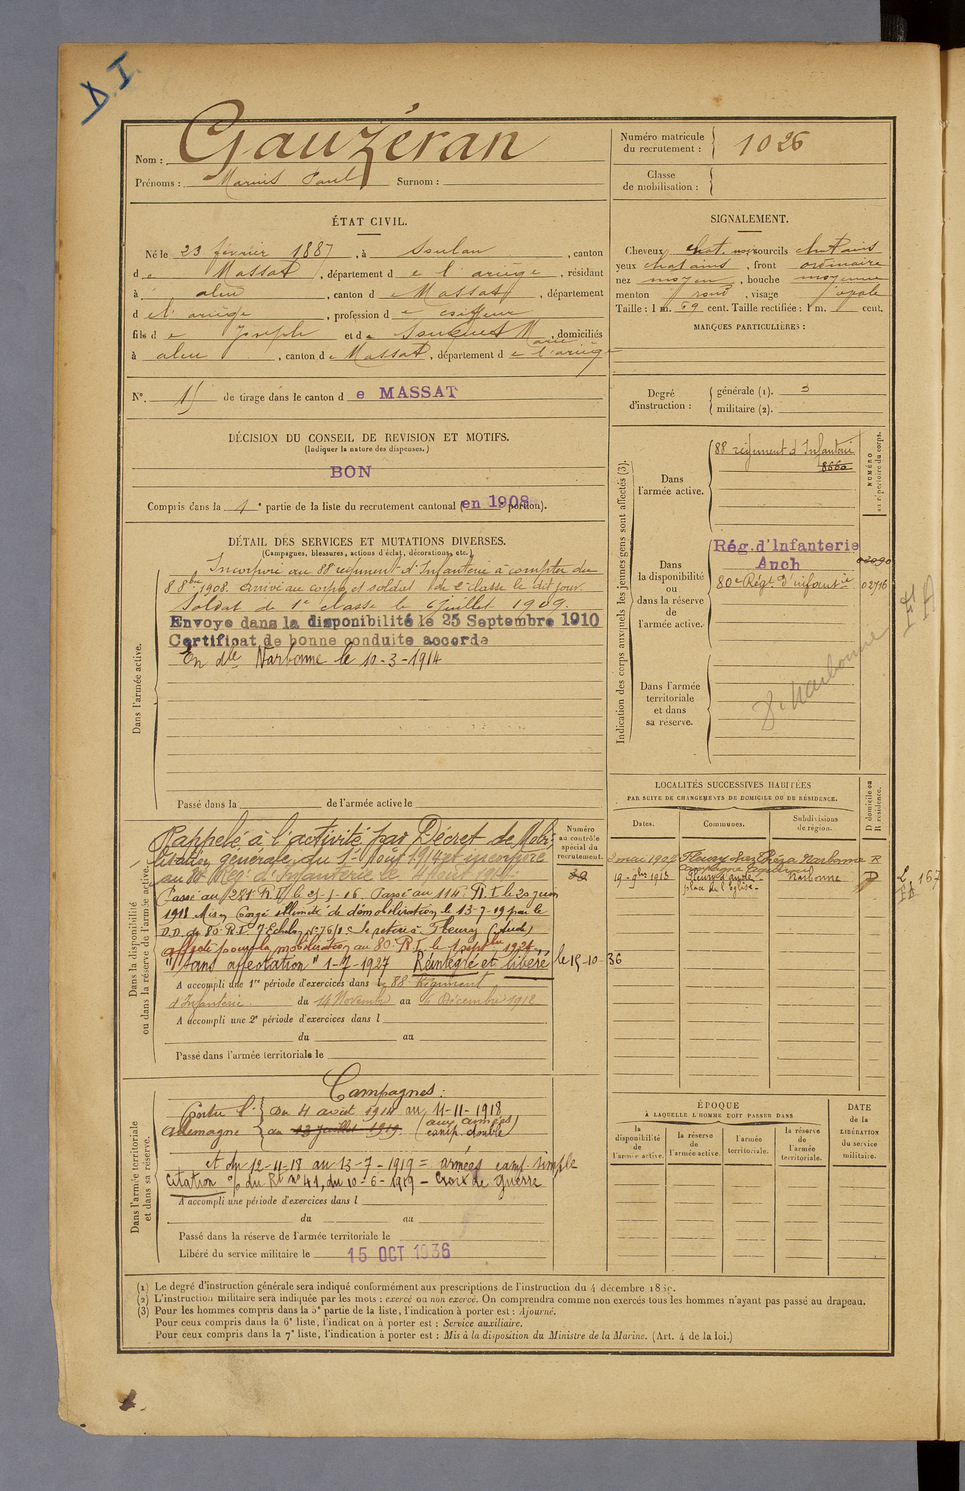 D. I.
Nom : Gauzéran
Prénoms : Marius Paul Surnom :
Numéro matricule du recrutement : 1026
Classe de mobilisation :
ÉTAT CIVIL.
Né le 23 février 1887, à Soulan, canton
de Massat, département de l'ariège, résidant
à aleu, canton de Massat, département
de l'ariège, profession de coiffeur
fils de Joseph et de Marie, domiciliés
à aleu, canton de Massat, département de l'ariège
SIGNALEMENT.
Cheveux chat. sourcils chatains
yeux chatains, front ordinaire
nez moyen, bouche moyenne
menton rond, visage ovale
Taille : 1 m. 69 cent. Taille rectifiée : 1 m. cent.
MARQUES PARTICULIÈRES :
N°. 15 de tirage dans le canton de MASSAT
Degré d'instruction : générale (1). 3
militaire (2).
DÉCISION DU CONSEIL DE REVISION ET MOTIFS.
(Indiquer la nature des dispenses.)
BON
Compris dans la 1e partie de la liste du recrutement cantonal (en 1908 portion).
DÉTAIL DES SERVICES ET MUTATIONS DIVERSES.
(Campagnes, blessures, actions d'éclat, décorations, etc.)
Dans l'armée active.
Incorporé au 88 régiment d'Infanterie à compter du
8 8bre 1908. arrivé au corps et soldat de 2e classe le dit jour.
Soldat de 1e classe le 6 juillet 1909.
Envoyé dans la disponibilité le 25 Septembre 1910
Certificat de bonne conduite accordé
En dle Narbonne le 10-3-1914
Passé dans la de l'armée active le
Indication des corps auxquels les jeunes gens sont affectés (3).
NUMÉRO au répertoire du corps.
Dans l'armée active.
88 régiment d'Infanterie
8660
Dans la disponibilité ou dans la réserve de l'armée active.
Rég. d'Infanterie
Auch
80e Régt d'infanterie 02716
Dans l'armée territoriale et dans sa réserve.
Narbonne
LOCALITÉS SUCCESSIVES HABITÉES
PAR SUITE DE CHANGEMENTS DE DOMICILE OU DE RÉSIDENCE.
Dates. Communes. Subdivisions de région. D domicile ou R résidence.
Fleury chez Narbonne R
19-9bre 1913 Fleury d'aude Narbonne D
place de l'église
Dans la disponibilité ou dans la réserve de l'armée active.
Numéro au contrôle spécial du recrutement.
Rappelé à l'activité par Décret de Mobi-
lisation générale du 1er Août 1914 et incorporé
au 80e Régt d'Infanterie le 4 Août 1914
Passé au 281e R.I. le 25-1-16. Passé au 114e R.I. le 20 juin
1918 Mis en Congé illimité de démobilisation le 13-7-19 par le
D.D. du 80e R.I. 7e Echelon N° 76/8 Se retire à Fleury (Aude)
affecté pour la mobilisation au 80e R.I. le 1 septbre 1924
"Sans affectation" 1-7-1927 Réintégré et libéré le 15-10-36
A accompli une 1re période d'exercices dans le 88e Régiment
d'Infanterie du 14 Novembre au 6 Décembre
A accompli une 2e période d'exercices dans l
du au
Passé dans l'armée territoriale le
Dans l'armée territoriale et dans sa réserve.
Campagnes :
Contre l' Allemagne { Du 4 août 1914 au 11-11-1918
au 13 juillet 1919 (aux armées) camp. double
et du 12-11-18 au 13-7-1919 = armées camp. simple
Citation o/ du Rt n° 41, du 10-6-1919 - Croix de guerre
A accompli une période d'exercices dans l
du au
Passé dans la réserve de l'armée territoriale le
Libéré du service militaire le 15 OCT 1936
ÉPOQUE
À LAQUELLE L'HOMME DOIT PASSER DANS
la disponibilité de l'armée active. la réserve de l'armée active. l'armée territoriale. la réserve de l'armée territoriale.
DATE de la LIBÉRATION du service militaire.
(1) Le degré d'instruction générale sera indiqué conformément aux prescriptions de l'instruction du 4 décembre 1889.
(2) L'instruction militaire sera indiquée par les mots : exercé ou non exercé. On comprendra comme non exercés tous les hommes n'ayant pas passé au drapeau.
(3) Pour les hommes compris dans la 5e partie de la liste, l'indication à porter est : Ajourné.
Pour ceux compris dans la 6e liste, l'indication à porter est : Service auxiliaire.
Pour ceux compris dans la 7e liste, l'indication à porter est : Mis à la disposition du Ministre de la Marine. (Art. 4 de la loi.)